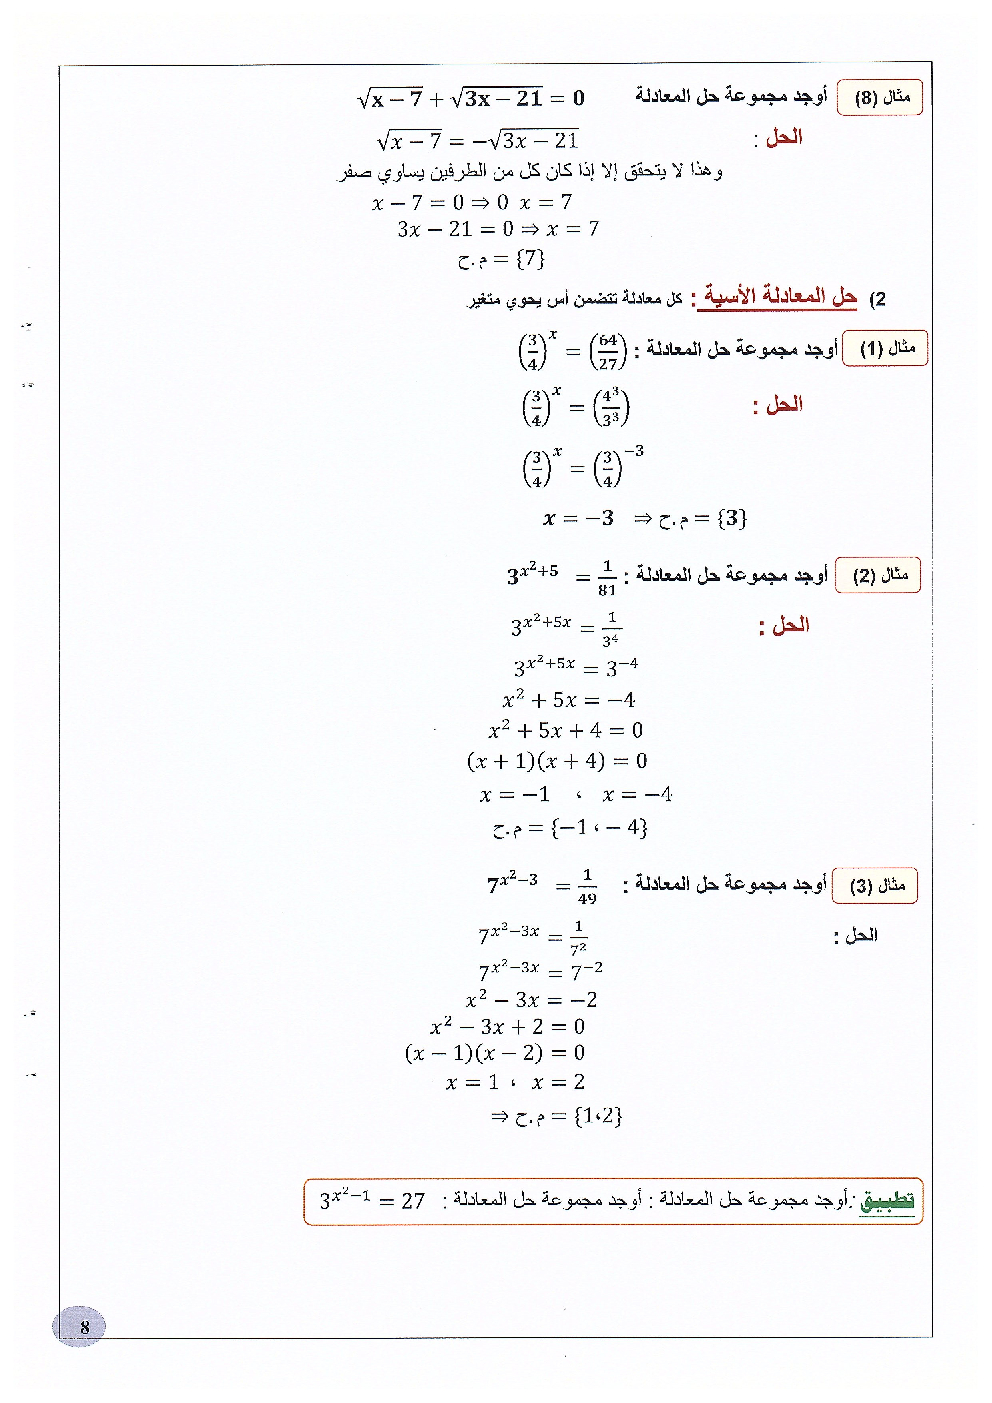 مثال (8) أوجد مجموعة حل المعادلة √x − 7 + √3x − 21 = 0
الحل : √x − 7 = −√3x − 21
وهذا لا يتحقق إلا إذا كان كل من الطرفين يساوي صفر.
x − 7 = 0 ⇒ 0 x = 7
3x − 21 = 0 ⇒ x = 7
م.ح = {7}
2) حل المعادلة الأسية : كل معادلة تتضمن أس يحوي متغير.
مثال (1) أوجد مجموعة حل المعادلة : (3/4)^x = (64/27)
الحل : (3/4)^x = (4³/3³)
(3/4)^x = (3/4)^−3
x = −3 ⇒ م.ح = {3}
مثال (2) أوجد مجموعة حل المعادلة : 3^(x²+5) = 1/81
الحل : 3^(x²+5x) = 1/3⁴
3^(x²+5x) = 3^−4
x² + 5x = −4
x² + 5x + 4 = 0
(x + 1)(x + 4) = 0
x = −1 ، x = −4
م.ح = {−1 ، − 4}
مثال (3) أوجد مجموعة حل المعادلة : 7^(x²−3) = 1/49
الحل : 7^(x²−3x) = 1/7²
7^(x²−3x) = 7^−2
x² − 3x = −2
x² − 3x + 2 = 0
(x − 1)(x − 2) = 0
x = 1 ، x = 2
⇒ م.ح = {1،2}
تطبيق :. أوجد مجموعة حل المعادلة : أوجد مجموعة حل المعادلة : 3^(x²−1) = 27
8